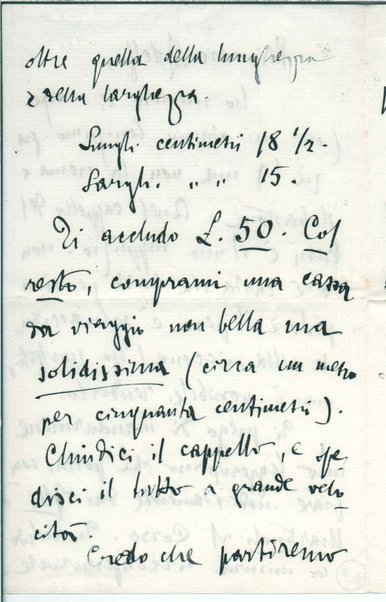 oltre quella della lunghezza
e della larghezza.
Lungh. centimetri 18 1/2.
Largh. " " 15.
Ti accludo L. 50. Col
resto, comprami una cassa
da viaggio non bella ma
solidissima (circa un metro
per cinquanta centimetri).
Chiudici il cappello, e spe,
disci il tutto a grande velo,
cità.
Credo che partiremo